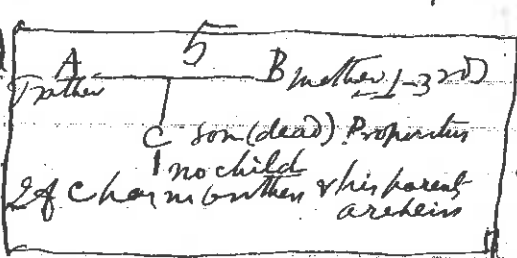 5
A B mother 1-3rd
Father
C son (dead) Properties
no child
If C has no brother & his parents are heirs